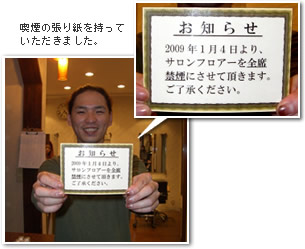 喫煙の張り紙を持って
いただきました。
お知らせ
2009年1月4日より、
サロンフロアーを全席
禁煙にさせて頂きます。
ご了承ください。
お知らせ
2009年1月4日より、
サロンフロアーを全席
禁煙にさせて頂きます。
ご了承ください。